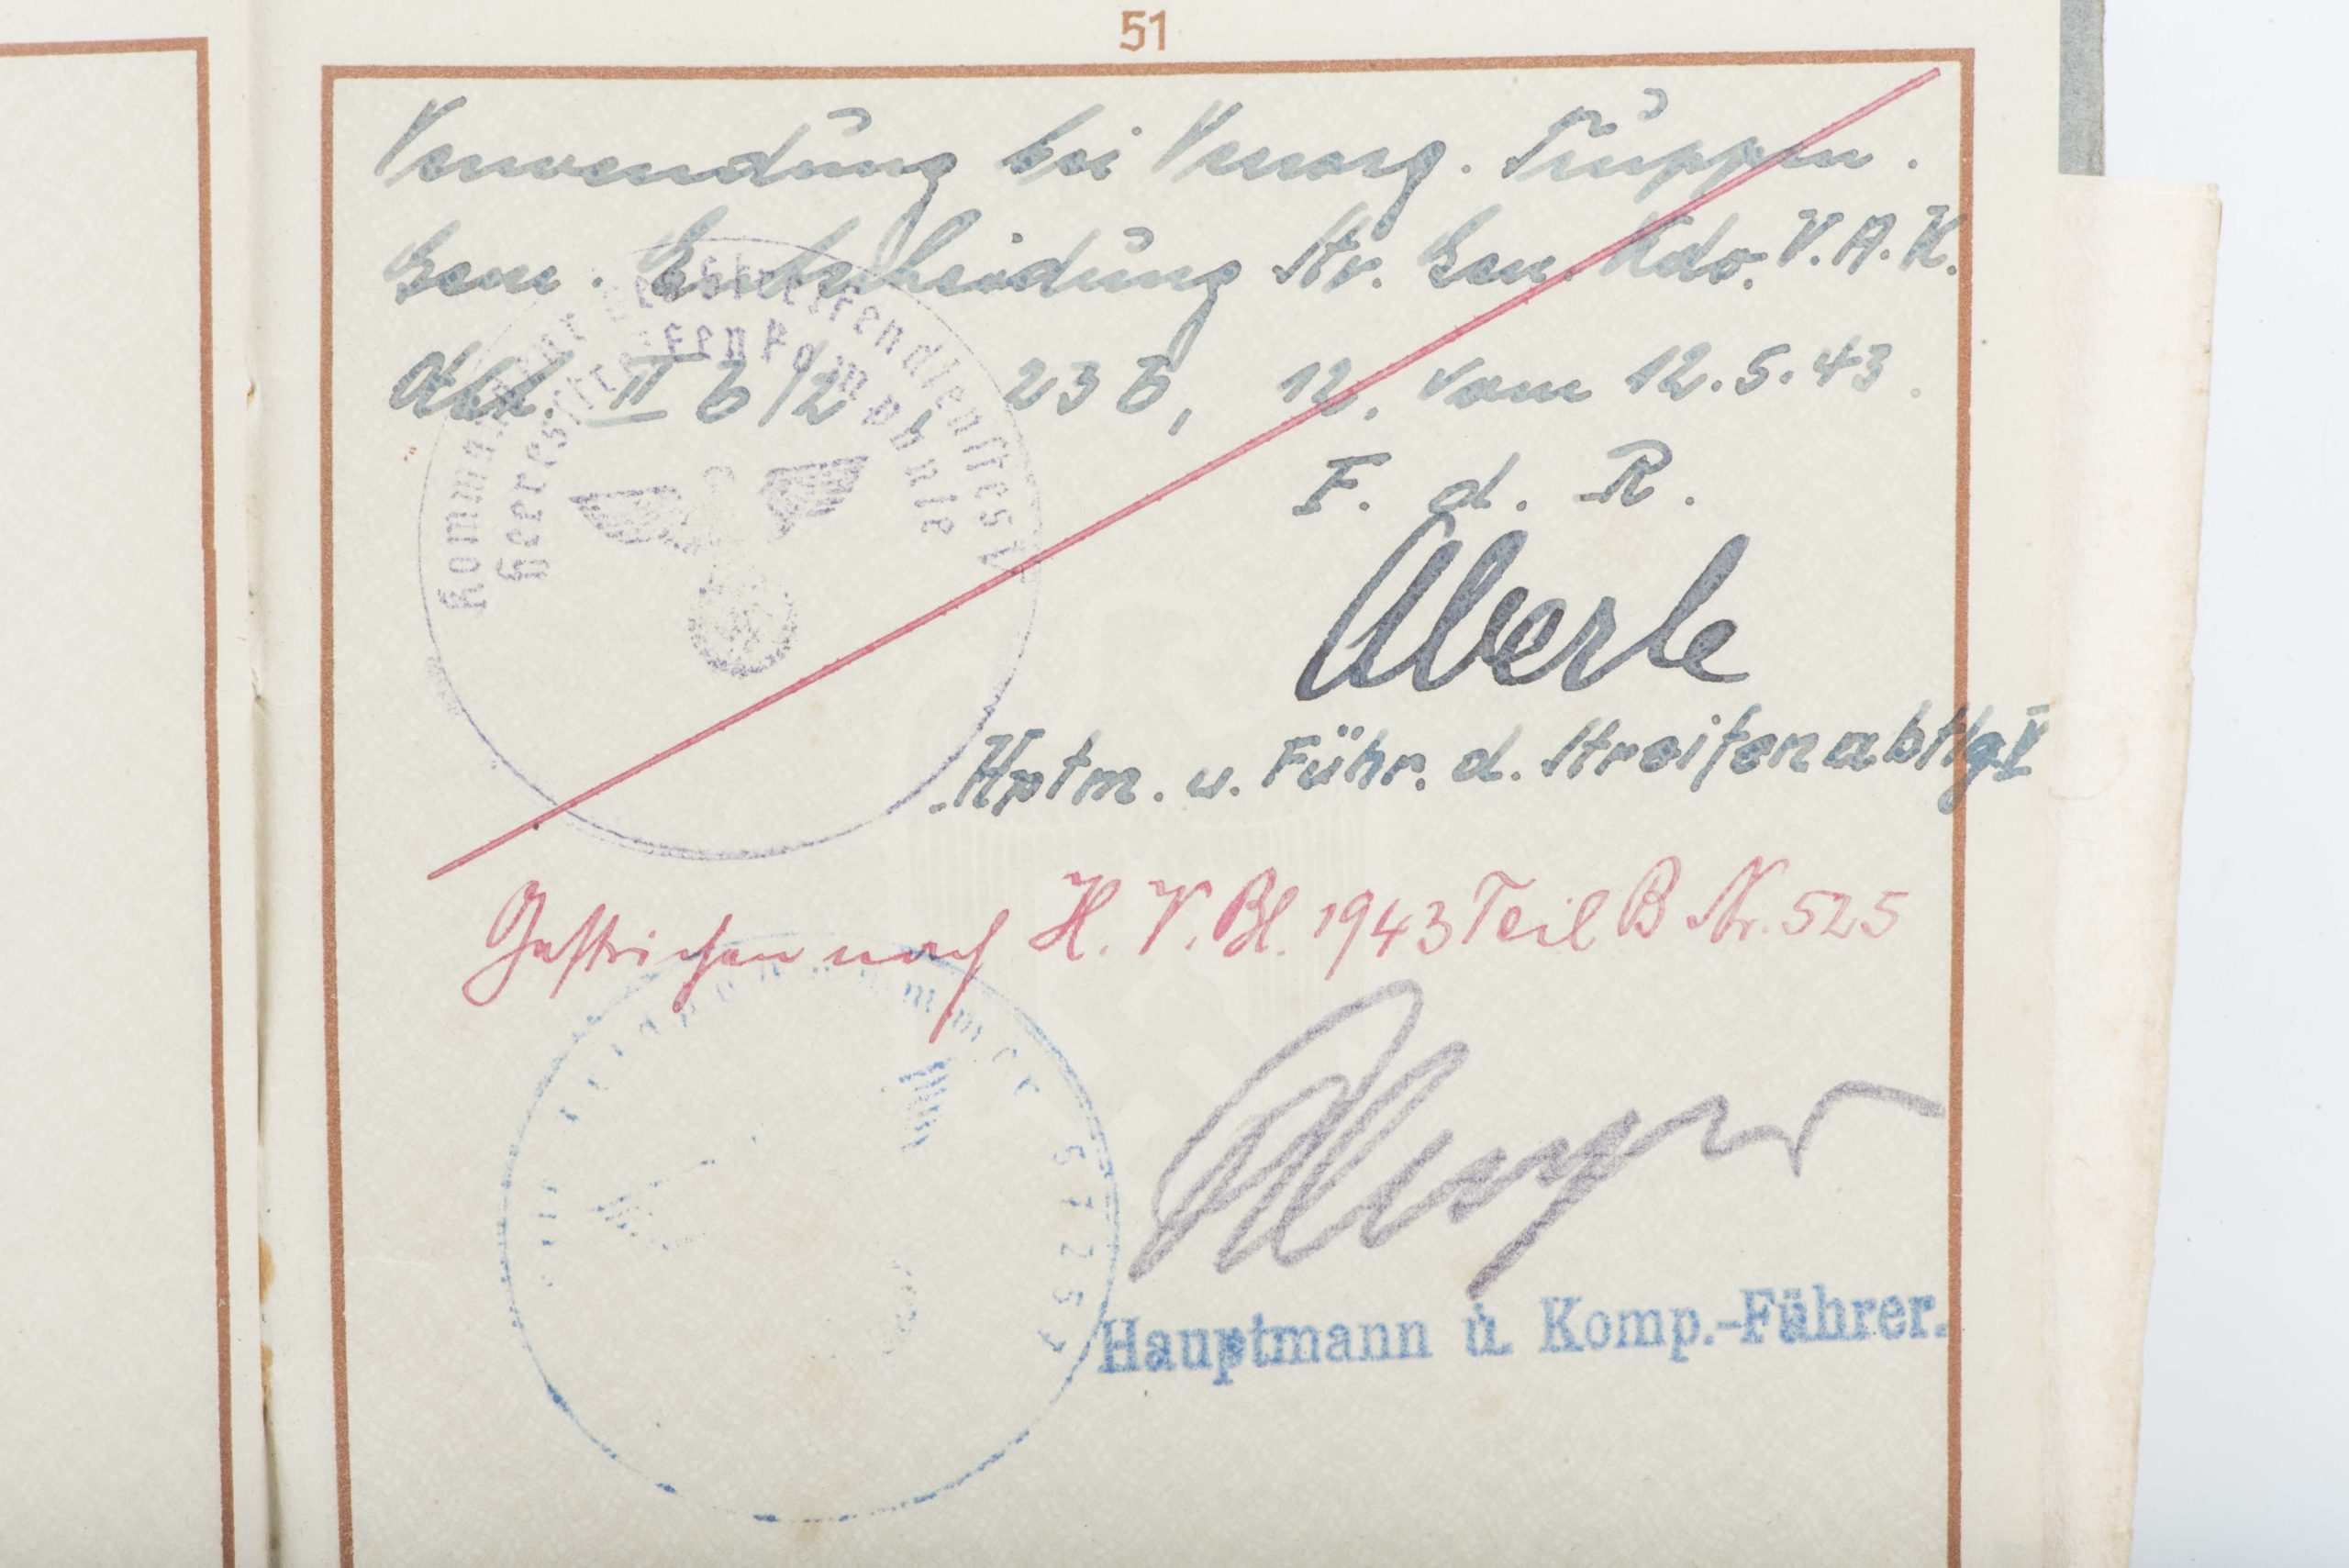 51
Verwendung bei Versorg. Truppen.
Gem. Entscheidung Str. Gen. Kdo. V. A. K.
Abt. II b/2, 23 b, 12. vom 12.5.43.
F. d. R.
Aberle
Hptm. u. Führ. d. Streifenabtlg V
Kommandeur Heeresstreifendienstes V
Heeresstreifenkompanie
Gestrichen nach H. V. Bl. 1943 Teil B Nr. 525
Feldpostnummer 57257
Hauptmann u. Komp.-Führer.